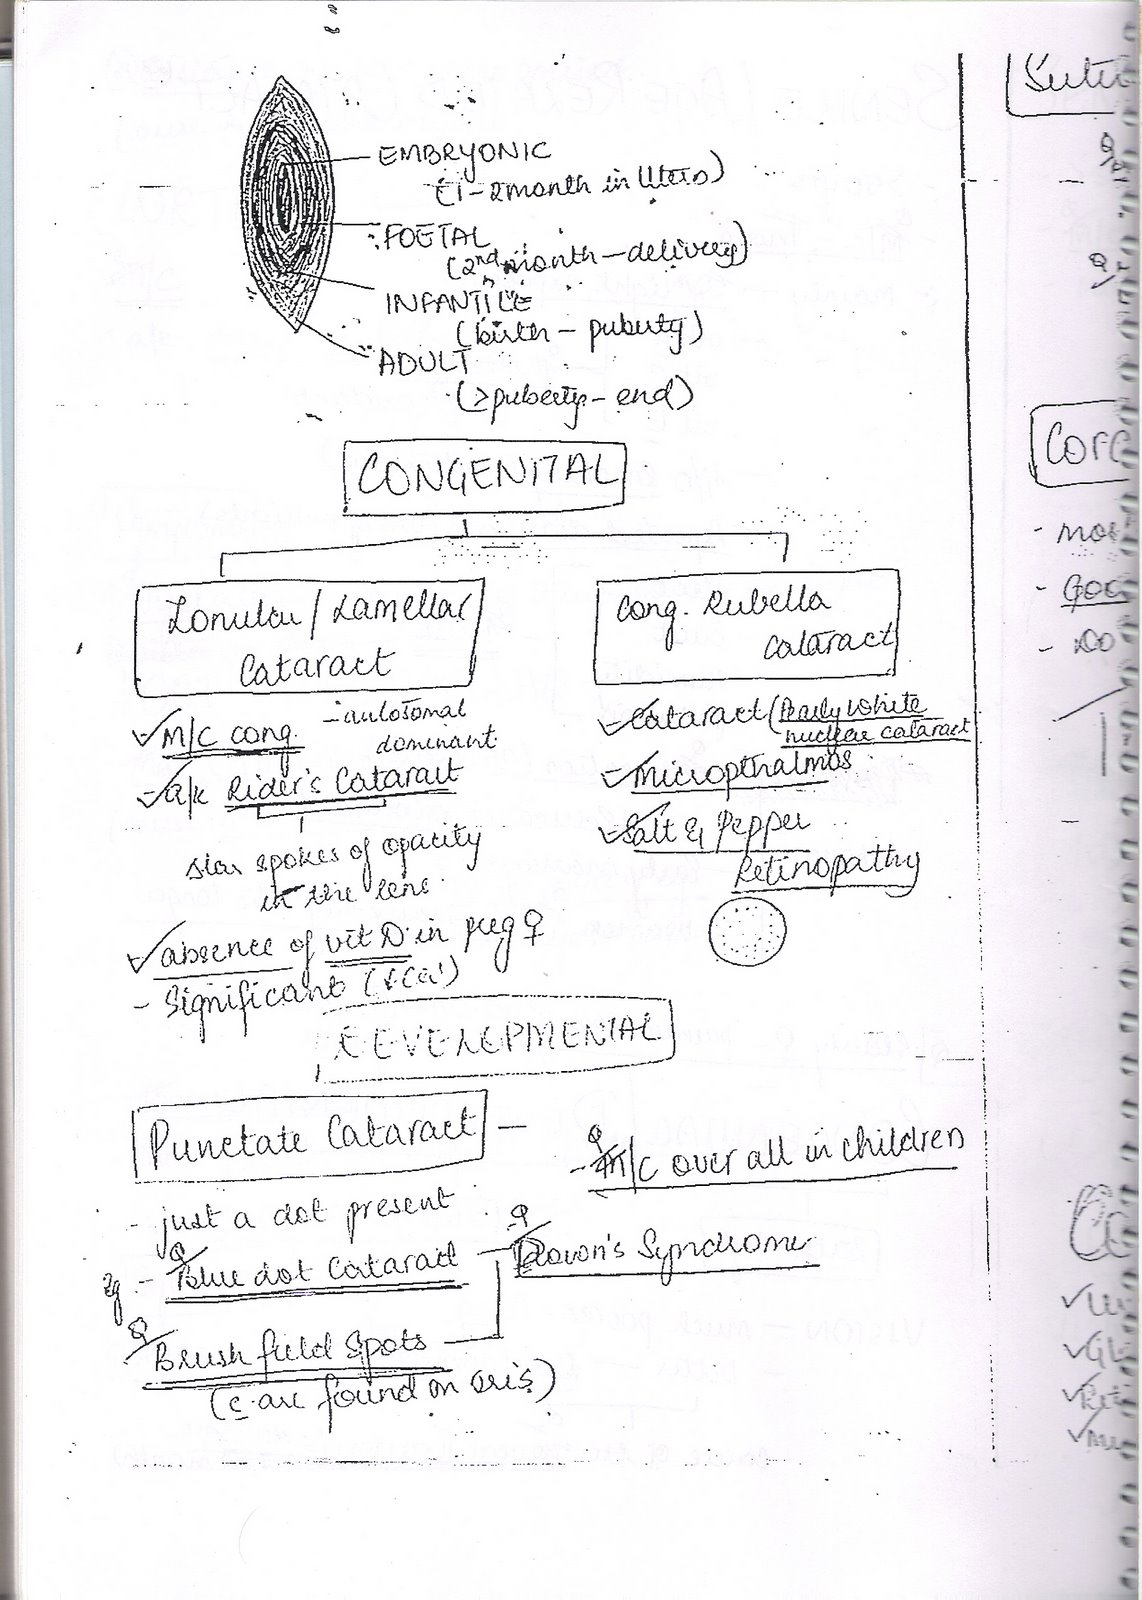 EMBRYONIC
(1-2 month in Utero)
FOETAL
(2nd month - delivery)
INFANTILE
(birth - puberty)
ADULT
(>puberty - end)
CONGENITAL
Zonular / Lamellar
Cataract
- autosomal
dominant
M/C cong.
a/k Rider's Cataract
star spokes of opacity
in the lens.
absence of vit D in preg ♀
- Significant
Cong. Rubella
Cataract
- Cataract (Pearly White
nuclear cataract
- Micropthalmos
- Salt & Pepper
Retinopathy
DEVELOPMENTAL
Punctate Cataract -
- M/C over all in children
- just a dot present
Eg - Blue dot Cataract - Down's Syndrome
Brush field Spots
(c are found on iris)
Sutu
Corc
- mos
- Goo
- Do
Gl
Ret